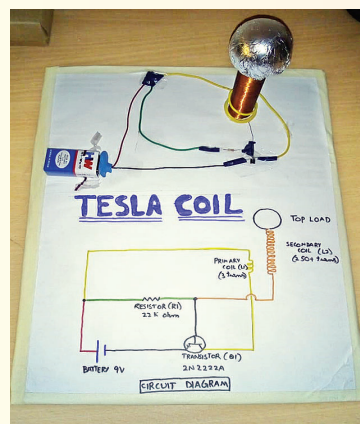 HW
TESLA COIL
TOP LOAD
SECONDARY
COIL (L2)
(250+ turns)
PRIMARY
COIL (L1)
(3 turns)
RESISTOR (R1)
22 K ohm
BATTERY 9V
TRANSISTOR (Q1)
2N2222A
CIRCUIT DIAGRAM